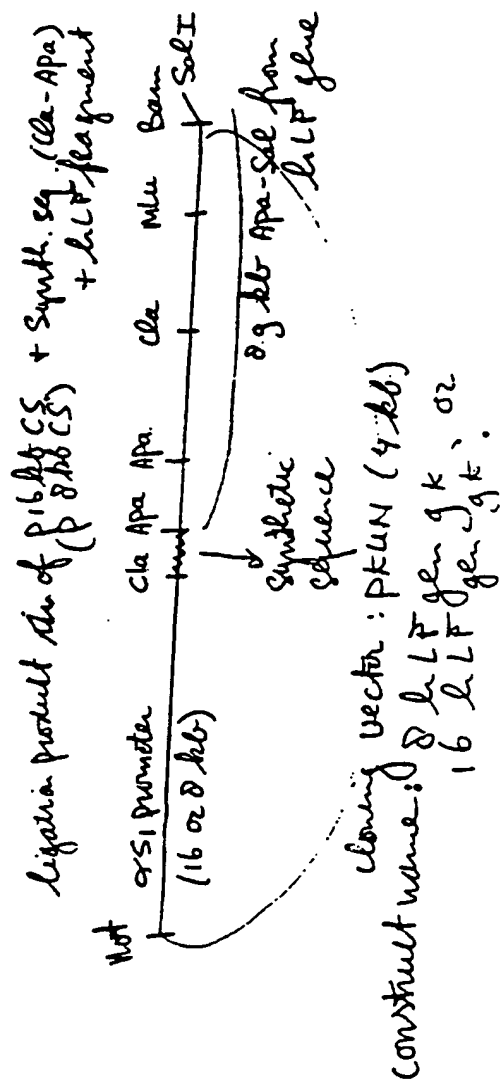 ligation product of p16kb CS + Synth. seq. (Cla-Apa)
(p8kb CS) + hLF fragment
Not
αS1 promoter
(16 or 8 kb)
Cla Apa Apa. Cla Mlu Bam
Sal I
Synthetic
sequence
8.9 kb Apa-Sal from
hLF gene
cloning vector: pKUN (4 kb)
Construct name: 8 hLF gen 9k
16 hLF gen 9k, or